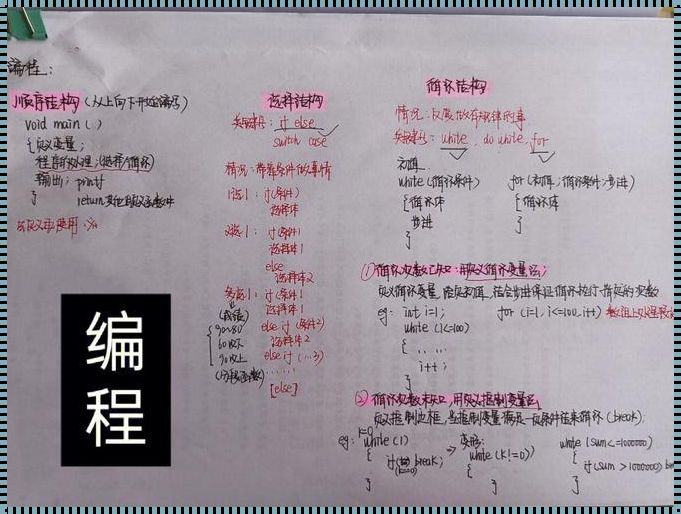 编程：
顺序结构（从上向下开始编写）
void main ( )
{ 定义变量；
程序的处理；(选择/循环)
输出；printf
}
return
选择结构
关键词：if else
switch case
情况：带着条件做事情
1选1：if (条件)
选择体
2选1：if (条件)
选择体1
else
选择体2
多选1：if (条件1
选择体1
else if (条件2)
选择体2
else if (...3)
......
[else]
(成绩)
90~80
60以下
90以上
(分段函数)
循环结构
情况：反复做有规律的事
关键词：while, do while, for
初值
while (循环条件)
{ 循环体
步进
}
for (初值；循环条件；步进)
{ 循环体
}
① 循环次数已知：用定义循环变量法；
定义循环变量，给定初值，结合步进保证循环执行指定的次数
eg: int i=1;
while (i<=100)
{ ....
i++;
}
for (i=1, i<=100, i++)
② 循环次数未知，用定义控制变量法
条件结束循环 (break)
eg: k=0
while (1)
{
break;
}
⇒ 变形：
while (k!=0)
{
}
while (sum<=1000000)
{
if (sum > 1000000)
}
编
程